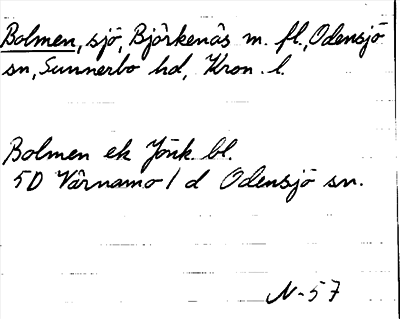 Bolmen, sjö, Björkenäs m. fl., Odensjö
sn, Sunnerbo hd, Kron. l.
Bolmen ek Jönk. bl.
5D Värnamo 1 d Odensjö sn.
N-57